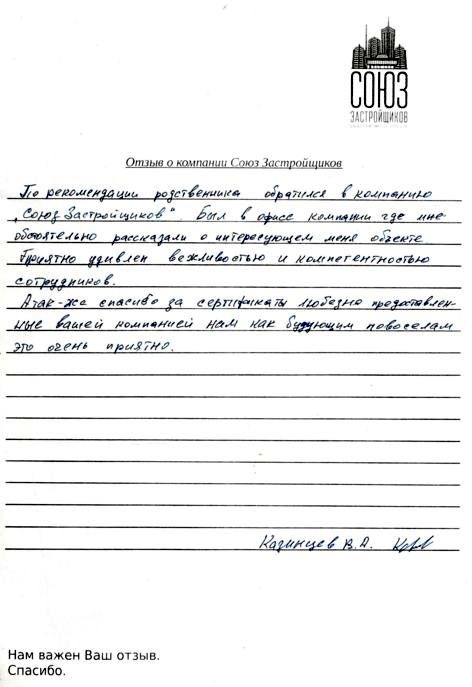 СОЮЗ
ЗАСТРОЙЩИКОВ
Отзыв о компании Союз Застройщиков
По рекомендации родственника обратился в компанию
„Союз Застройщиков". Был в офисе компании где мне
обстоятельно рассказали о интересующем меня объекте
Приятно удивлен вежливостью и компетентностью
сотрудников.
А так-же спасибо за сертификаты любезно предоставлен-
ные вашей компанией нам как будующим новоселам
это очень приятно.
Казинцев В.А.
Нам важен Ваш отзыв.
Спасибо.